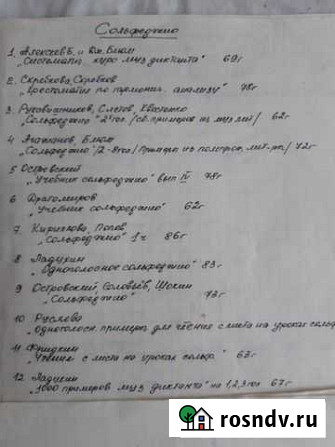 Сольфеджио
1. Алексеев Б. и Дм. Блюм
„Систематич. курс муз. диктанта" 69г
2. Скребкова, Скребков
„Хрестоматия по гармонич. анализу" 78г
3. Рукавишников, Слетов, Хвостенко
„Сольфеджио" 62г
4 Агажанов, Блюм
„Сольфеджио" 72г
5 Островский
„Учебник сольфеджио" вып IV 78г
6 Драгомиров
„Учебник сольфеджио" 62г
7. Кириллова, Попов
„Сольфеджио" 1ч 86г
8 Ладухин
„Одноголосное сольфеджио" 83г
9 Островский, Соловьёв, Шокин
„Сольфеджио" 73г
10 Русяева
„Одноголосн. примеры для чтения с листа на уроках сольф
11 Фридкин
Чтение с листа на уроках сольф." 63г
12 Ладухин
„1000 примеров муз диктанта" на 1,2,3 гол 67г
rosndv.ru